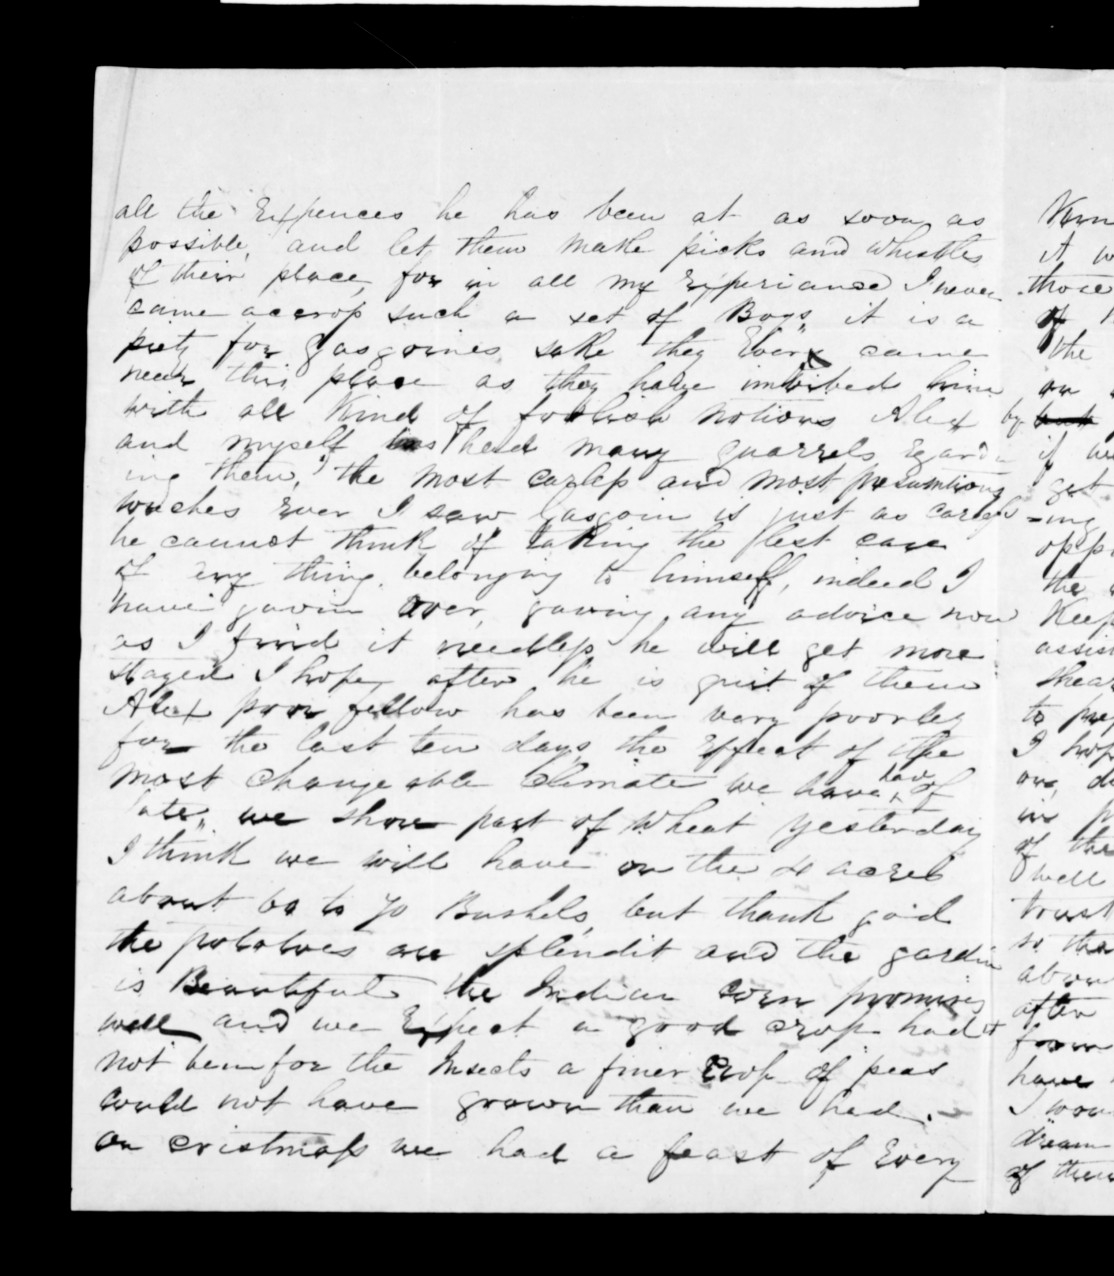 all the Expences he has been at as soon as
possible, and let them make picks and whistles
of their place, for in all my Experianse I never
came accross such a set of Boys, it is a
piety for Gasgoines sake they Ever came
near this place as they have imbibed him
with all Kind of foolish notions Alex
and myself has held many quarrels regard
ing them, the most careless and most presumtious
wretches Ever I saw Gasgoin is just as careless
he cannot think of taking the lest care
of eny thing belonging to himself, indeed I
have gavin over, gaving any advice now
as I find it needless he will get more
stayed I hope, after he is quit of them
Alex poor fellow has been very poorley
for the last ten days, the Effect of the
most changeable Climate we have hav of
late, we shore part of Wheat yesterday
I think we will have on the 4 acres
about 60 to 70 Bushels, but thank goid
the potatoes are splendit and the gardin
is Beautiful the Indian corn promising
well and we Expect a good crop had it
not been for the Insects a finer Crop of peas
could not have grown than we had.
on cristmass we had a feast of Every
it
those
of
the
on
by
if
get
=ing
the
Keep
I
on,
in
of the
well
trust
so
after
have
dream
of